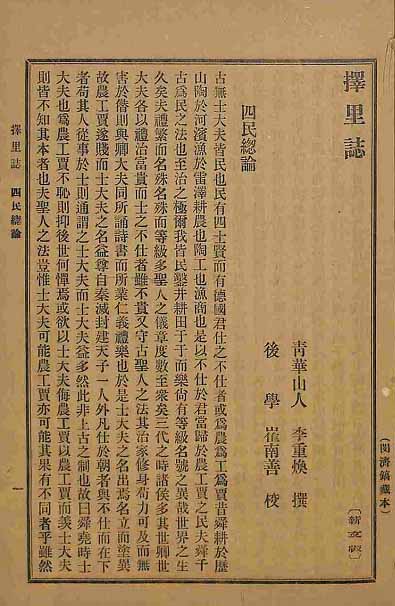 擇里誌
（閔濟鎬藏本）
〔新文版〕
靑華山人　李重煥　撰
後學　崔南善　校
四民總論
古無士大夫皆民也民有四士賢而有德國君仕之不仕者或爲農爲工爲賈昔舜耕於歷
山陶於河濱漁於雷澤耕農也陶工也漁商也是以不仕於君當歸於農工賈之民夫舜千
古爲民之法也至治之極爾我皆民鑿井耕田于于而樂尙有等級名號之異哉世界之生
久矣夫禮繁而名殊名殊而等級多聖人之儀章度數至衆矣三代之時諸侯多其世卿世
大夫各以禮治富貴而士之不仕者雖不貴又守古聖人之法其治家修身苟力可及而無
害於僭則與卿大夫同所誦詩書而所業仁義禮樂也於是士大夫之名出焉名立而塗異
故農工賈遂賤而士大夫之名益尊自秦滅封建天子一人外凡仕於朝者與不仕而在下
者苟其人從事於士則通謂之士大夫而士大夫益多然此非上古之制也故曰舜堯時士
大夫也爲農工賈不恥則抑後世何憚焉或欲以士大夫侮農工賈以農工賈而羨士大夫
則皆不知其本者也夫聖人之法豈惟士大夫可能農工賈亦可能其果有不同者乎雖然
擇里誌　四民總論
一